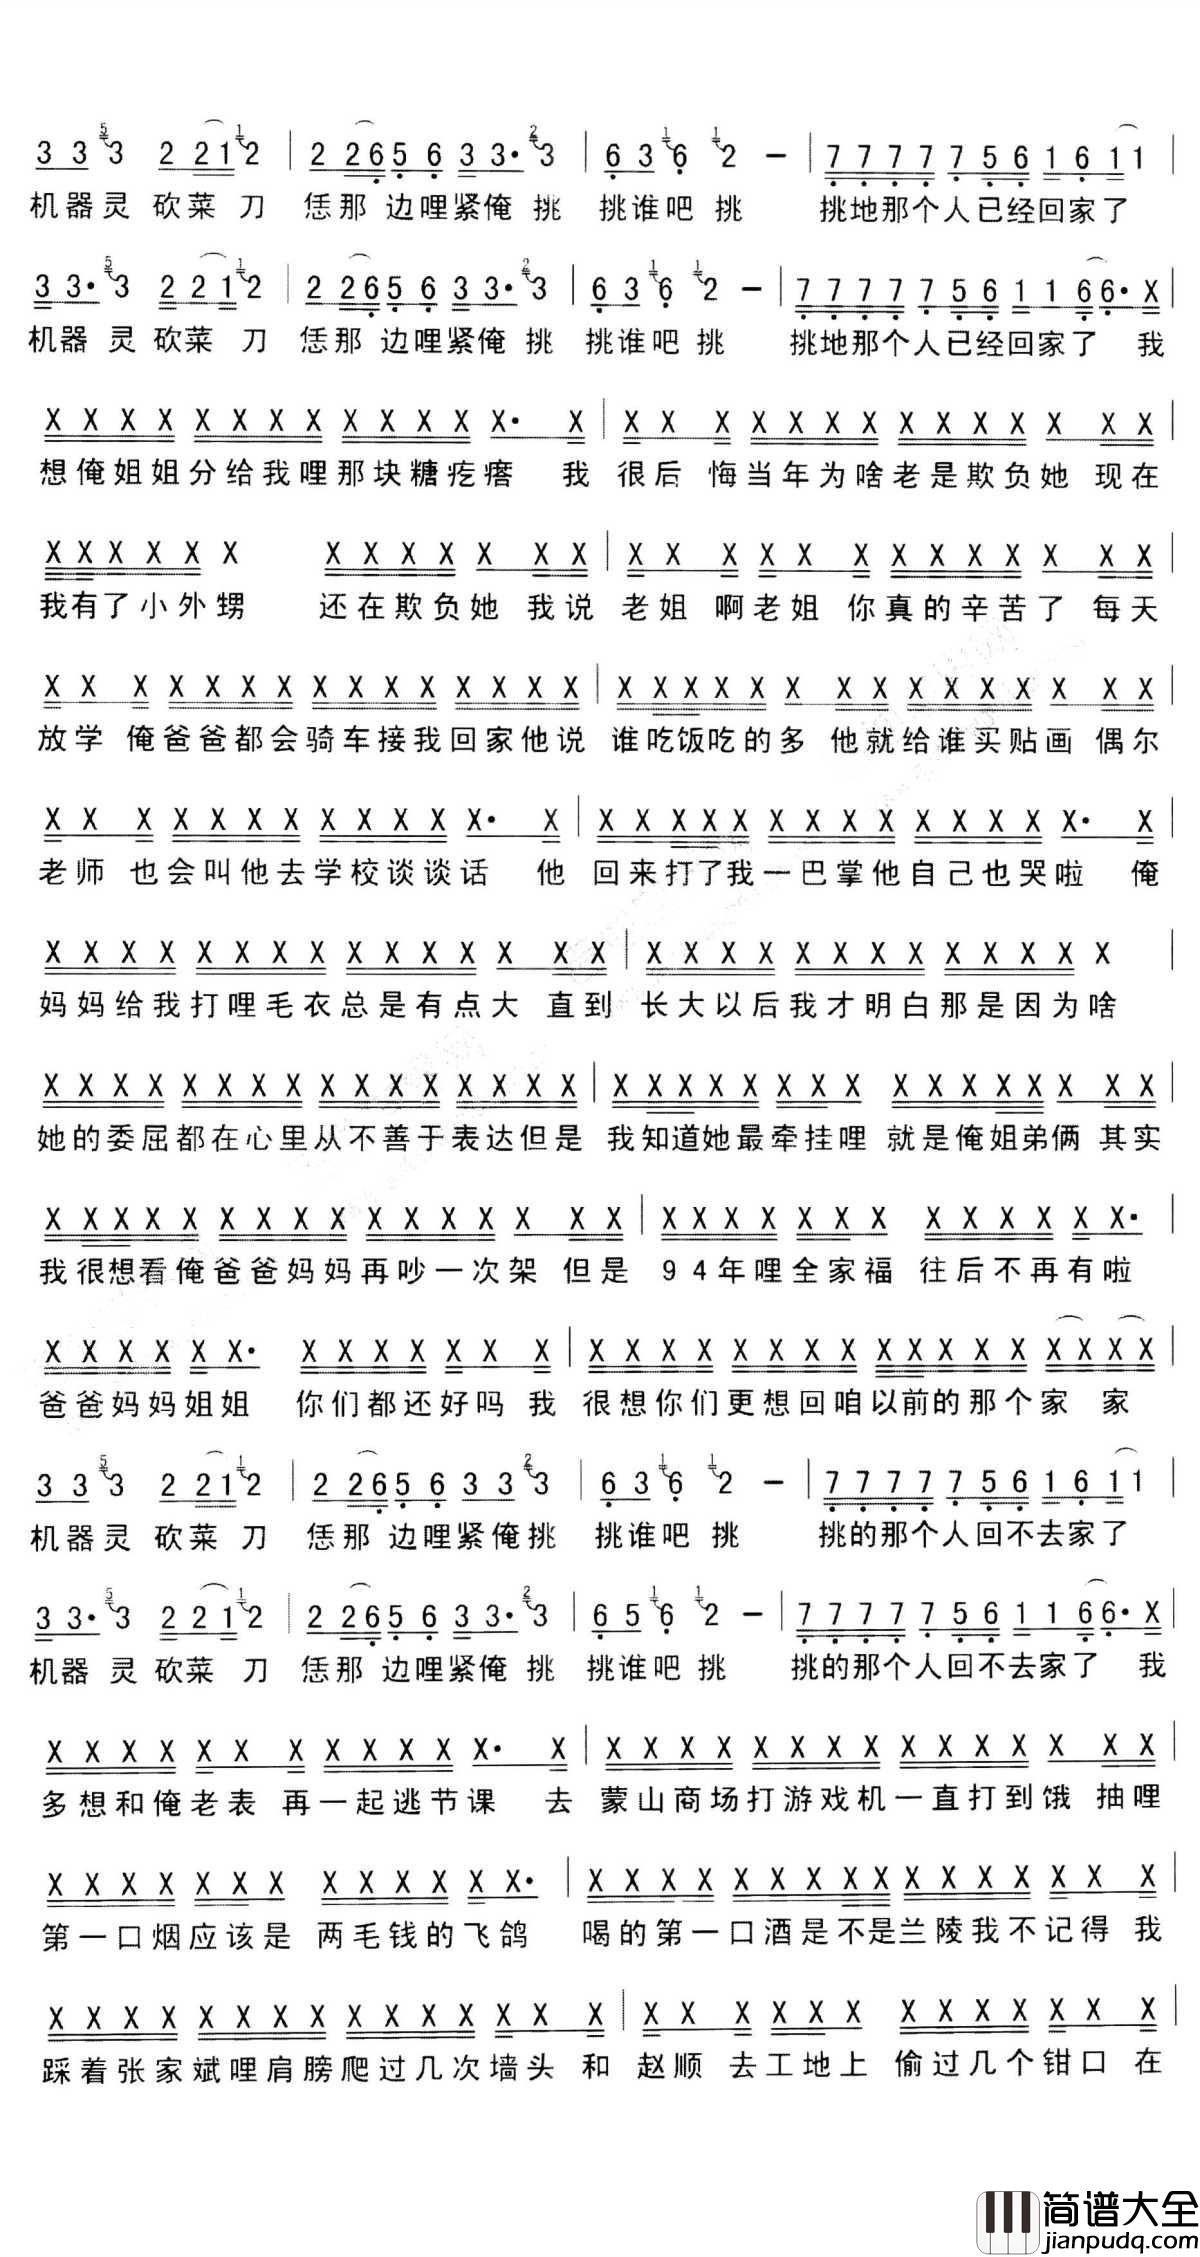 3 3 5 3 2 2 1 1 2 | 2 2 6 5 6 3 3· 2 3 | 6 3 1 6 1 2 – | 7 7 7 7 7 5 6 1 6 1 1 |
机器灵 砍菜 刀 恁那 边哩紧俺 挑 挑谁吧 挑 挑地那个人已经回家了
3 3· 5 3 2 2 1 1 2 | 2 2 6 5 6 3 3· 2 3 | 6 3 1 6 1 2 – | 7 7 7 7 7 5 6 1 1 6 6· X |
机器 灵 砍菜 刀 恁那 边哩紧俺 挑 挑谁吧 挑 挑地那个人已经回家了 我
X X X X X X X X X X X X X· X | X X X X X X X X X X X X X X
想俺姐姐分给我哩那块糖疙瘩 我 很后 悔当年为啥老是欺负她 现在
X X X X X X X X X X X X X | X X X X X X X X X X X X X X
我有了小外甥 还在欺负她 我说 老姐 啊老姐 你真的辛苦了 每天
X X X X X X X X X X X X X X X | X X X X X X X X X X X X X X
放学 俺爸爸都会骑车接我回家他说 谁吃饭吃的多 他就给谁买贴画 偶尔
X X X X X X X X X X X X· X | X X X X X X X X X X X X X X· X |
老师 也会叫他去学校谈谈话 他 回来打了我一巴掌他自己也哭啦 俺
X X X X X X X X X X X X X X X | X X X X X X X X X X X X X |
妈妈给我打哩毛衣总是有点大 直到 长大以后我才明白那是因为啥
X X X X X X X X X X X X X X X X | X X X X X X X X X X X X X X X |
她的委屈都在心里从不善于表达但是 我知道她最牵挂哩 就是俺姐弟俩 其实
X X X X X X X X X X X X X X X X | X X X X X X X X X X X X X· |
我很想看俺爸爸妈妈再吵一次架 但是 94年哩全家福 往后不再有啦
X X X X X X· X X X X X X X | X X X X X X X X X X X X X X X X |
爸爸妈妈姐姐 你们都还好吗 我 很想你们更想回咱以前的那个家 家
3 3 5 3 2 2 1 1 2 | 2 2 6 5 6 3 3 2 3 | 6 3 1 6 1 2 – | 7 7 7 7 7 5 6 1 6 1 1 |
机器灵 砍菜 刀 恁那 边哩紧俺挑 挑谁吧 挑 挑的那个人回不去家了
3 3· 5 3 2 2 1 1 2 | 2 2 6 5 6 3 3· 2 3 | 6 5 1 6 1 2 – | 7 7 7 7 7 5 6 1 1 6 6· X |
机器 灵 砍菜 刀 恁那 边哩紧俺 挑 挑谁吧 挑 挑的那个人回不去家了 我
X X X X X X X X X X X X· X | X X X X X X X X X X X X X X X |
多想和俺老表 再一起逃节课 去 蒙山商场打游戏机一直打到饿 抽哩
X X X X X X X X X X X X X· | X X X X X X X X X X X X X X X X |
第一口烟应该是 两毛钱的飞鸽 喝的第一口酒是不是兰陵我不记得 我
X X X X X X X X X X X X X X X | X X X X X X X X X X X X X |
踩着张家斌哩肩膀爬过几次墙头 和 赵顺 去工地上 偷过几个钳口 在
简谱大全
jianpudq.com